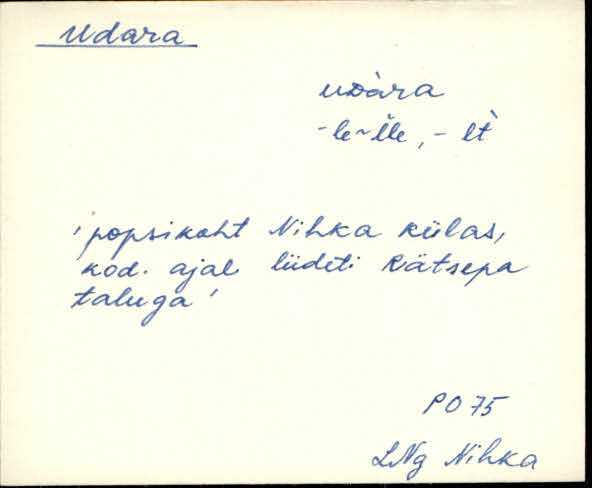 Udara
uᴅàra
-le ~ lle, - lt̀
'popsikoht Nihka külas,
kod. ajal liideti Rätsepa
taluga'
PO 75
LNg Nihka